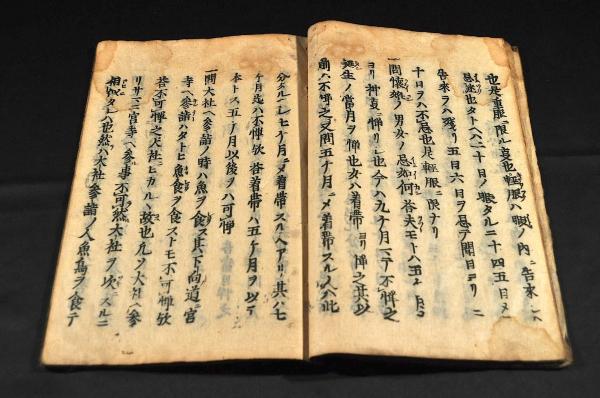 也是重服ニ限ル夏也軽服ハ服ノ内ニ告来レハ
忌也タトヘハ二十日ノ服タルニ十四五日メニ
告来ラハ残リ五日六日ヲ忌テ開日ヨリ二
十日ヲハ不忌也是軽服ニ限ナリ
一問懐妊ノ男女ノ忌如何答夫モトハ五ケ月
ヨリ神夏ニ憚リシ也今ハ九ケ月マテ不憚之
誕生ノ當月ヲ憚也女ハ着帯ヨリ憚之其以
前ハ不憚之又問五ケ月ニメ着帯スル人ハ此
分タルヘシ七ケ月ニメ着帯スルヘアリ其ハ七
ケ月迄ハ不憚欤答着帯ハ五ケ月ヲ以テ
本トス五ケ月以後ヲハ可憚
一問大社ヘ参詣ノ時ハ魚ヲ食ス其下向道ニ官
寺ヘ参詣ハタトヒ魚食ヲ食ストモ不可憚欤
答不可憚之大社ヒカルハ故也凡ソ大社ヘ参
リサマニ宮寺ヘ参事不可然大社ヲ次スルニ
相似タレハ也然ハ大社参詣ノ人魚鳥ヲ食テ